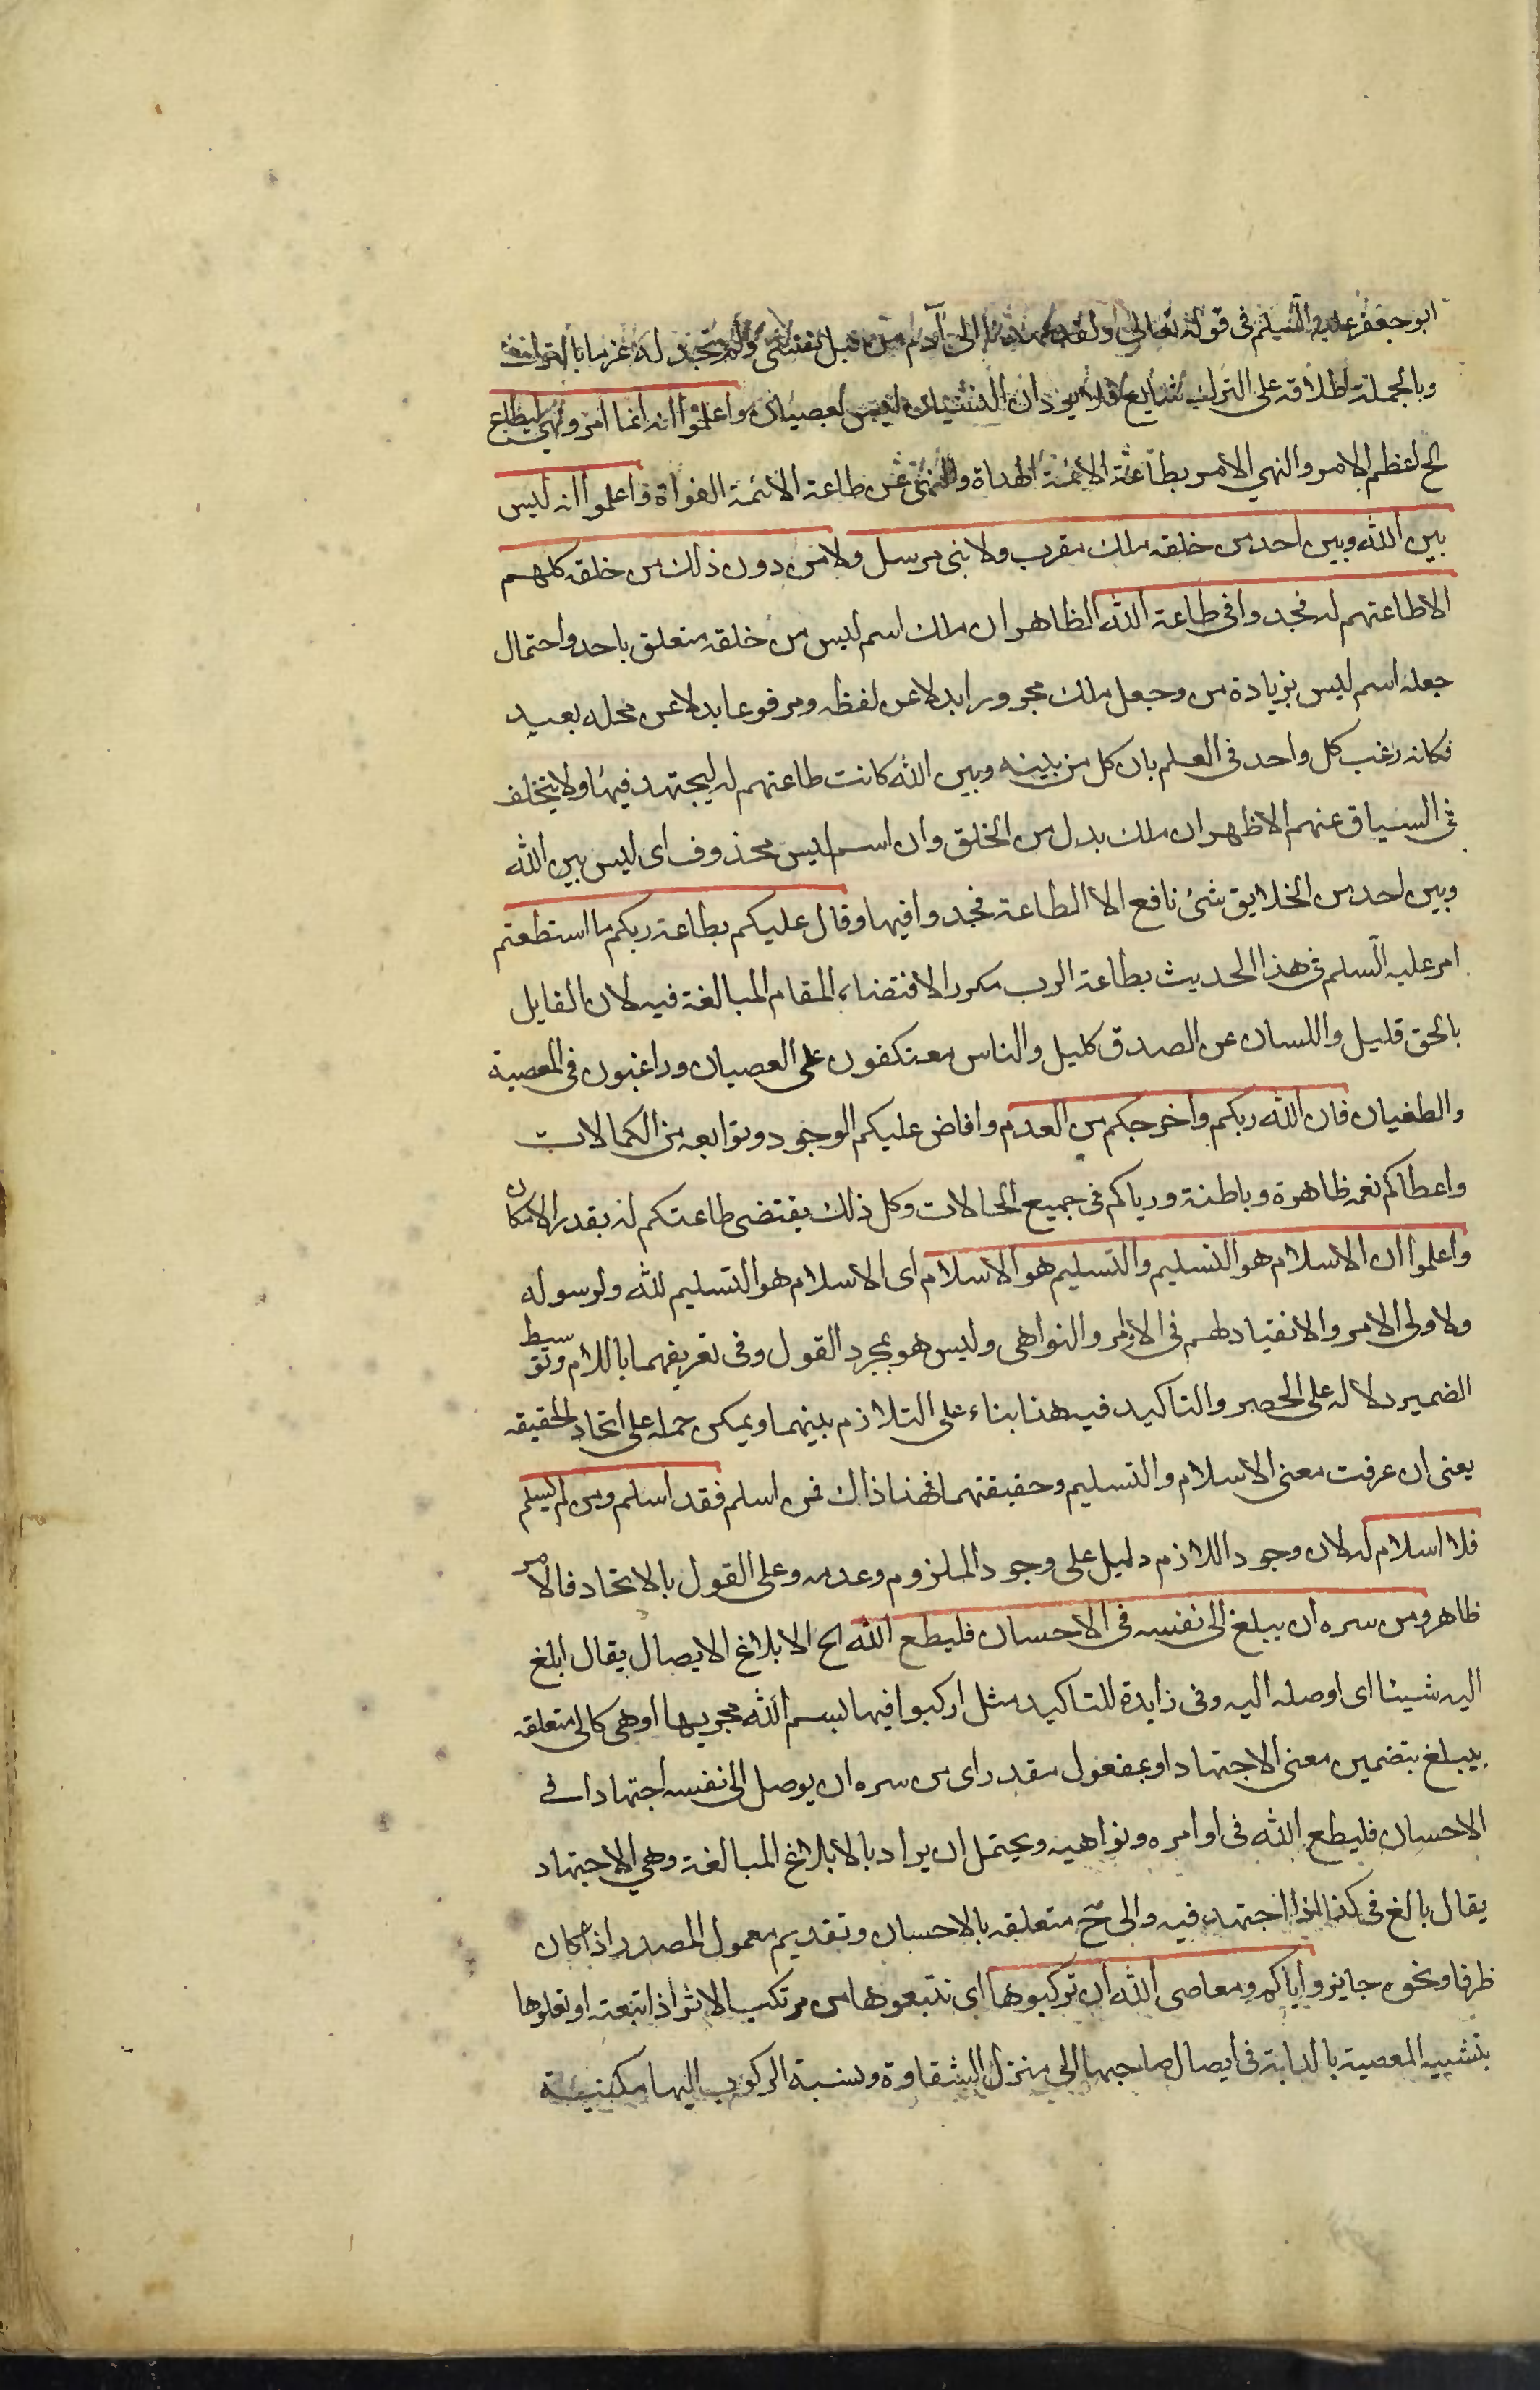 ابو جعفر عليه السلم فى قوله تعالى ولقد عهدنا الى آدم من قبل فنسى ولم نجد له عزما بالترك
وبالجملة اطلاقه على الترك شايع فلا يرد ان النسيان ليس بعصيان واعلموا انه انما امر ونهى ليطاع
الخ اعظم الامر والنهي الامر بطاعة الائمة الهداة والنهى عن طاعة الائمة الغواة واعلموا انه ليس
بين الله وبين احد من خلقه ملك مقرب ولا نبى مرسل ولا من دون ذلك من خلقه كلهم
الا طاعتهم له فجدوا فى طاعة الله الظاهر ان ملك اسم ليس من خلقه متعلق باحد واحتمال
جعله اسم ليس بزيادة من وجعل ملك مجرورا بدلا عن لفظه ومرفوعا بدلا عن محله بعيد
فكانه رغب كل واحد فى العلم بان كل من بينه وبين الله كانت طاعتهم له ليجتهد فيها ولا يتخلف
فى السياق عنهم الاظهر ان ملك بدل من الخلق وان اسم ليس محذوف اى ليس بين الله
وبين احد من الخلايق شئ نافع الا الطاعة فجدوا فيها وقال عليكم بطاعة ربكم ما استطعتم
امر عليه السلم فى هذا الحديث بطاعة الرب مكررا لاقتضاء المقام المبالغة فيه لان القايل
بالحق قليل واللسان عن الصدق كليل والناس معتكفون على العصيان وراغبون فى المعصية
والطغيان فان الله ربكم واخرجكم من العدم وافاض عليكم الوجود وتوابعه من الكمالات
واعطاكم نعمه ظاهرة وباطنة ورباكم فى جميع الحالات وكل ذلك يقتضى طاعتكم له بقدر الامكان
واعلموا ان الاسلام هو التسليم والتسليم هو الاسلام اى الاسلام هو التسليم لله ولرسوله
ولاولى الامر والانقياد لهم فى الاوامر والنواهى وليس هو بمجرد القول وفى تعريفهما باللام وتوسيط
الضمير دلاله على الحصر والتاكيد فيه هنا بناء على التلازم بينهما ويمكن حمله على اتحاد الحقيقه
يعنى ان عرفت معنى الاسلام والتسليم وحقيقتهما فهذا ذاك فمن اسلم فقد اسلم ومن لم يسلم
فلا اسلام له لان وجود اللازم دليل على وجود الملزوم وعدمه وعلى القول بالاتحاد فالامر
ظاهر ومن سره ان يبلغ الى نفسه فى الاحسان فليطع الله الخ الابلاغ الايصال يقال ابلغ
اليه شيئا اى اوصله اليه وفى زايدة للتاكيد مثل اركبوا فيها بسم الله مجريها او هى كالى متعلقه
بيبلغ بتضمين معنى الاجتهاد او بمفعول مقدر اى من سره ان يوصل الى نفسه اجتهادا فى
الاحسان فليطع الله فى اوامره ونواهيه ويحتمل ان يراد بالابلاغ المبالغة وهي الاجتهاد
يقال بالغ فى كذا اذا اجتهد فيه والى ح متعلقه بالاحسان وتقديم معمول المصدر اذا كان
ظرفا ونحوه جايز واياكم ومعاصى الله ان تركبوها اى تتبعوها من مرتكب الاثر اذا تبعته او تعلوها
بتشبيه المعصية بالدابة فى ايصال صاحبها الى منزل الشقاوة ونسبة الركوب اليها مكنية